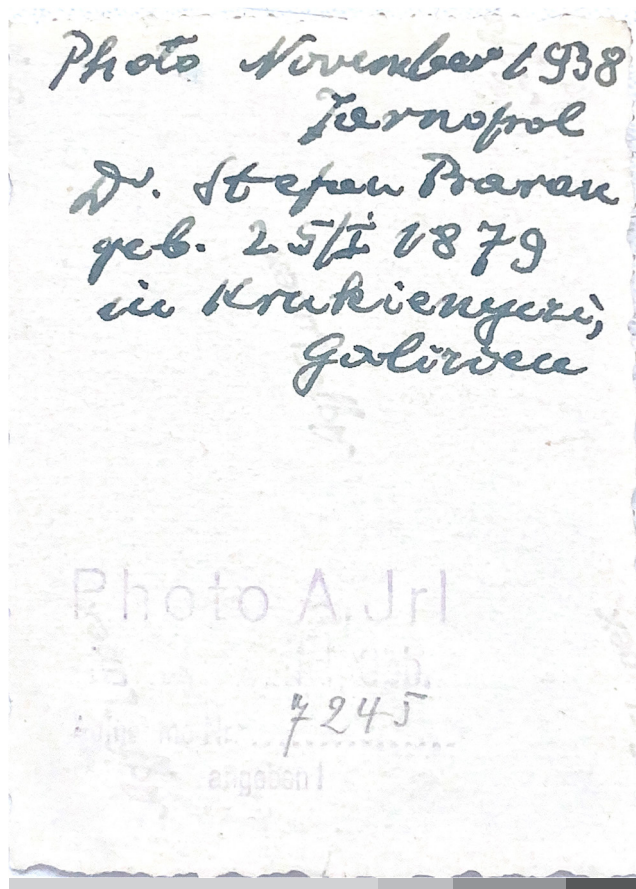 Photo November 1938
Tarnopol
Dr. Stepan Baran
geb. 25/I 1879
in Krukienyczi,
Galizien
Photo A.Jrl
7245